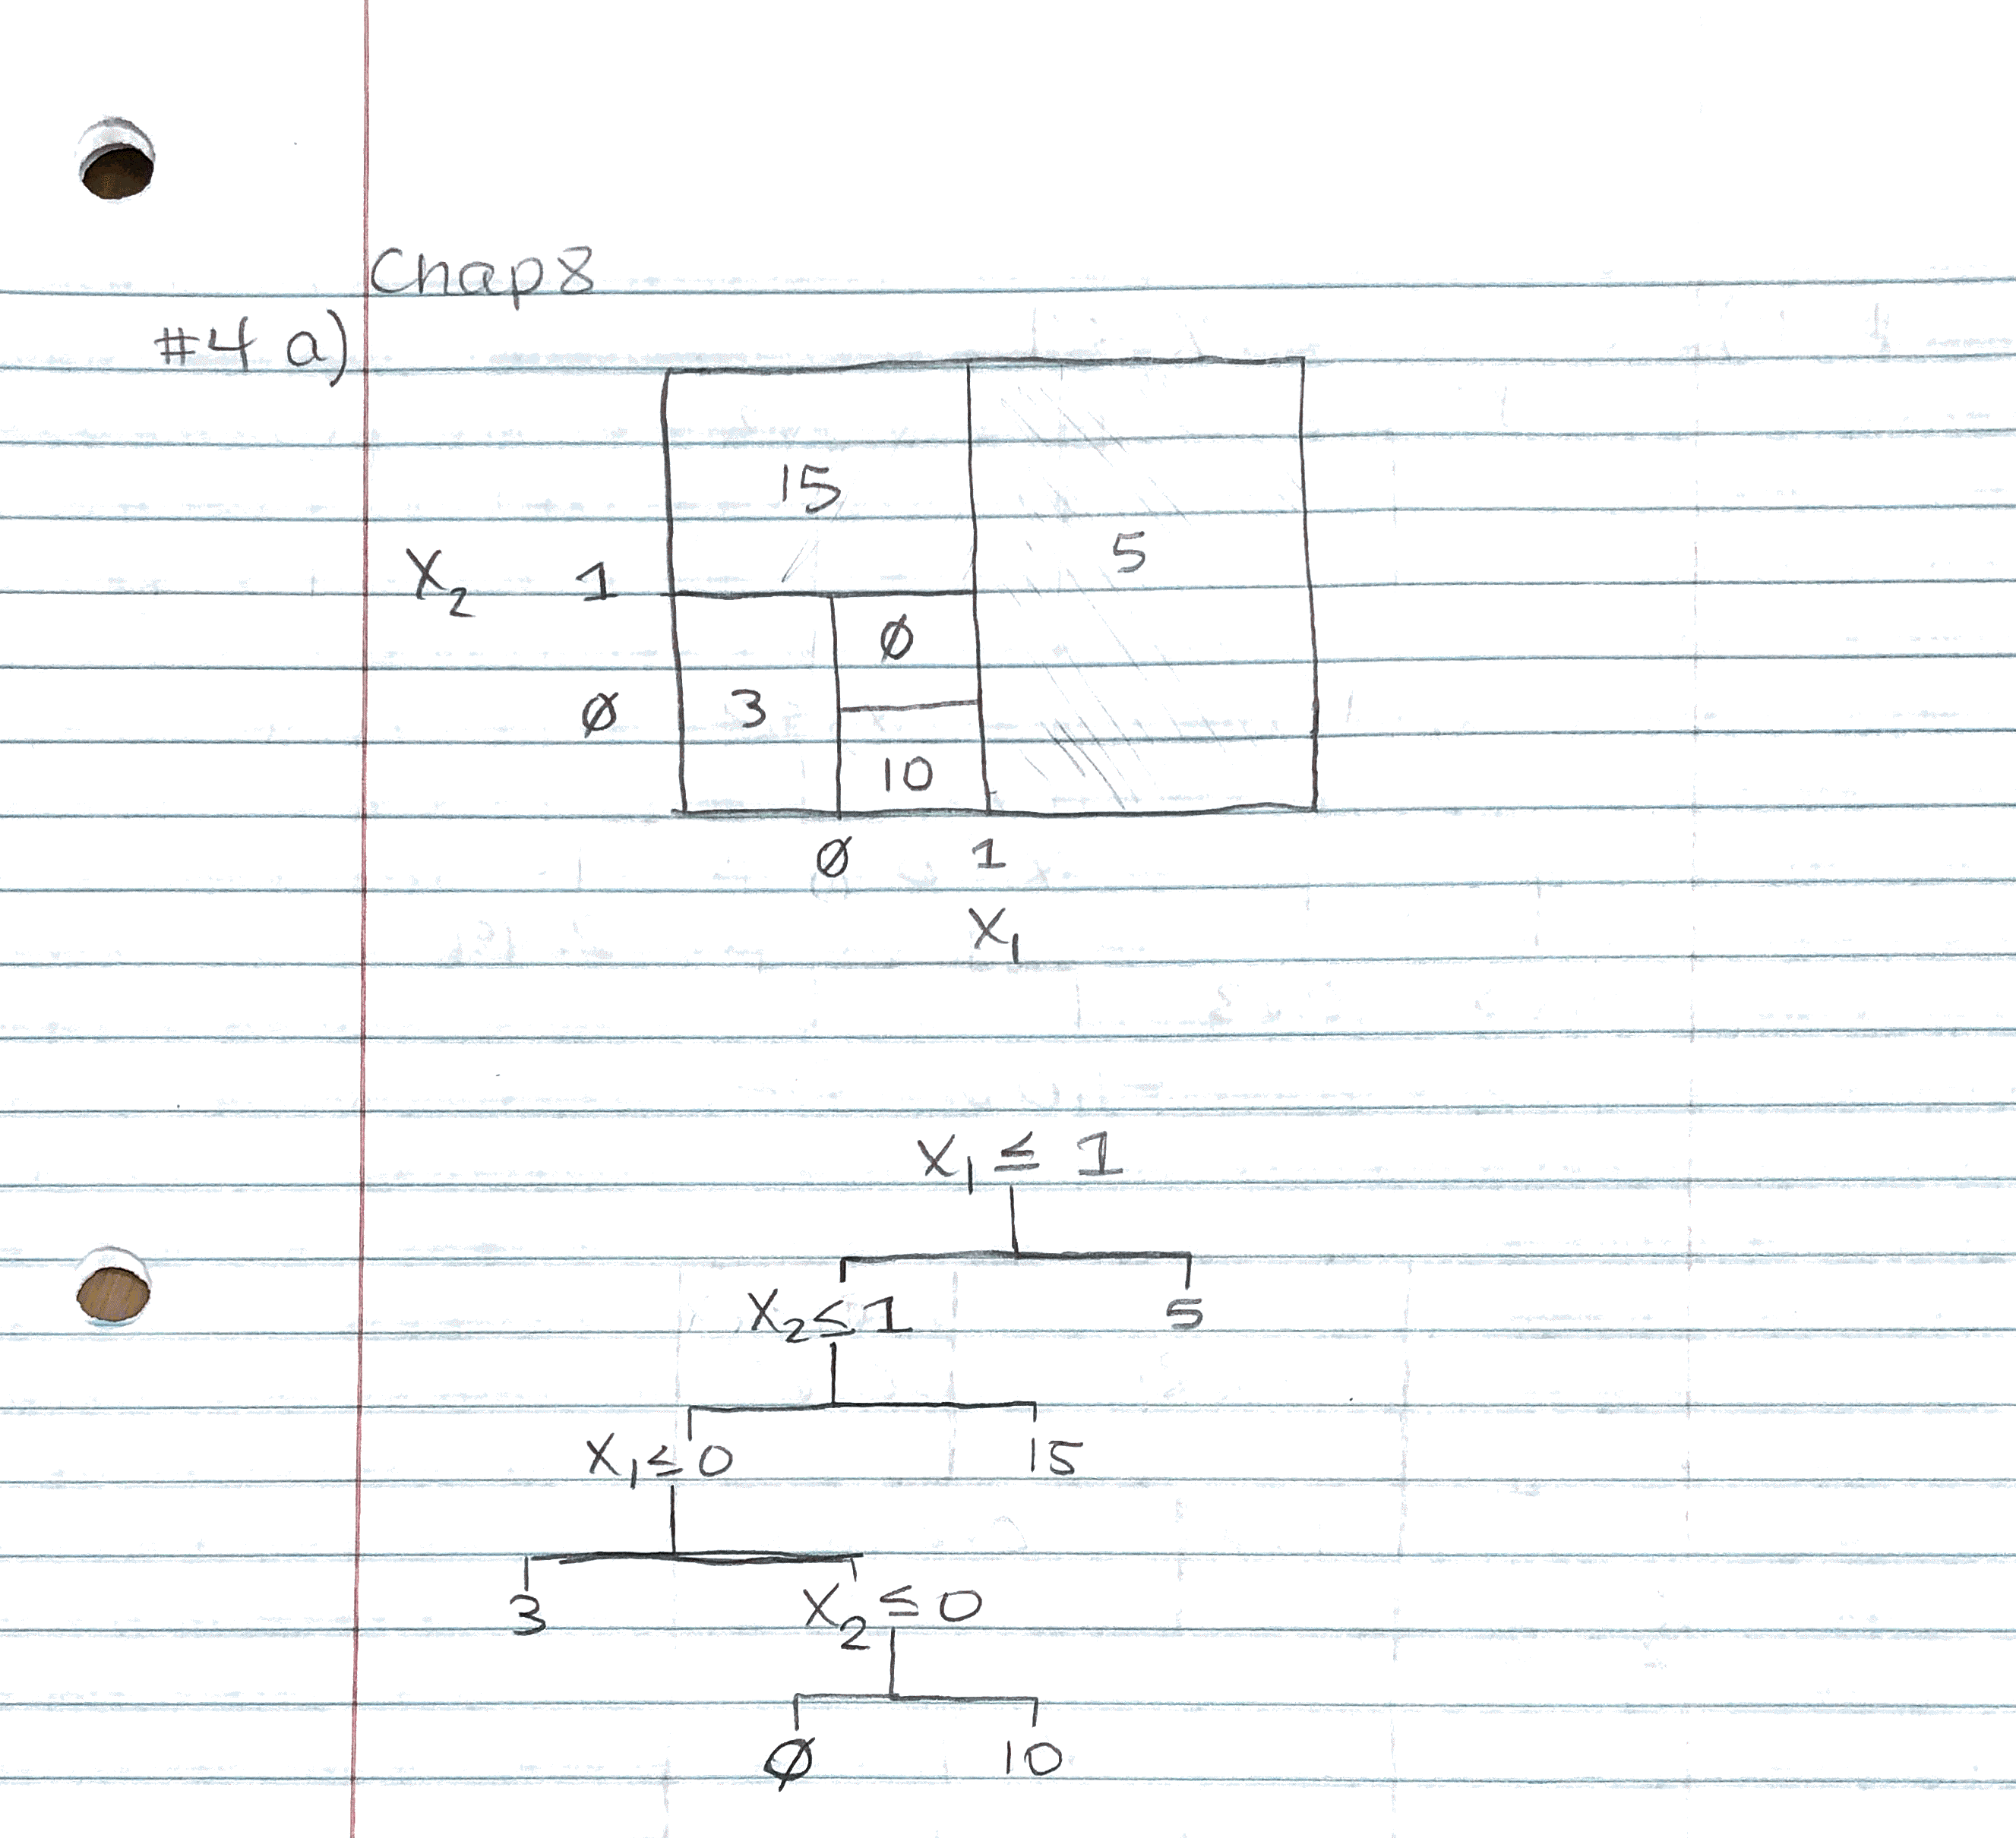 Chap 8
#4 a)
15
5
X₂ 1
Ø
Ø 3
10
Ø 1
X₁
X₁ ≤ 1
X₂ ≤ 1 5
X₁ ≤ 0 15
3 X₂ ≤ 0
Ø 10